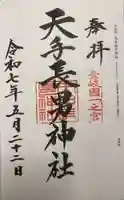 奉拝
壱岐國一之宮
天手長男神社
令和七年五月二十二日